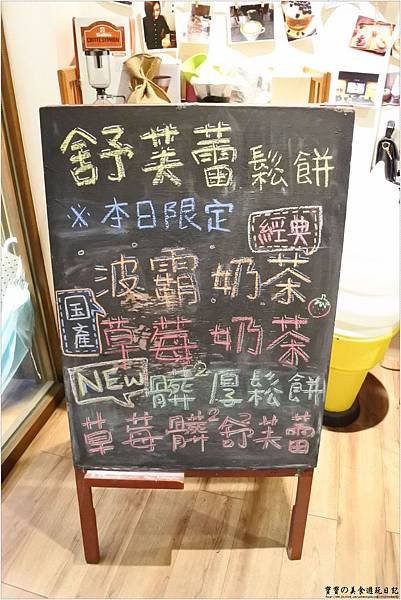 舒芙蕾鬆餅
※本日限定
經典
波霸奶茶
国產
草莓奶茶
NEW 髒²厚鬆餅
草莓髒²舒芙蕾
寶寶の美食遊玩日記